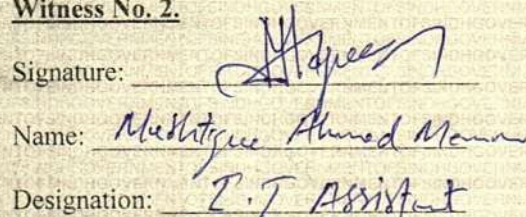 Witness No. 2.
Signature:
Name: Mushtaque Ahmed Memon
Designation: I.T Assistant